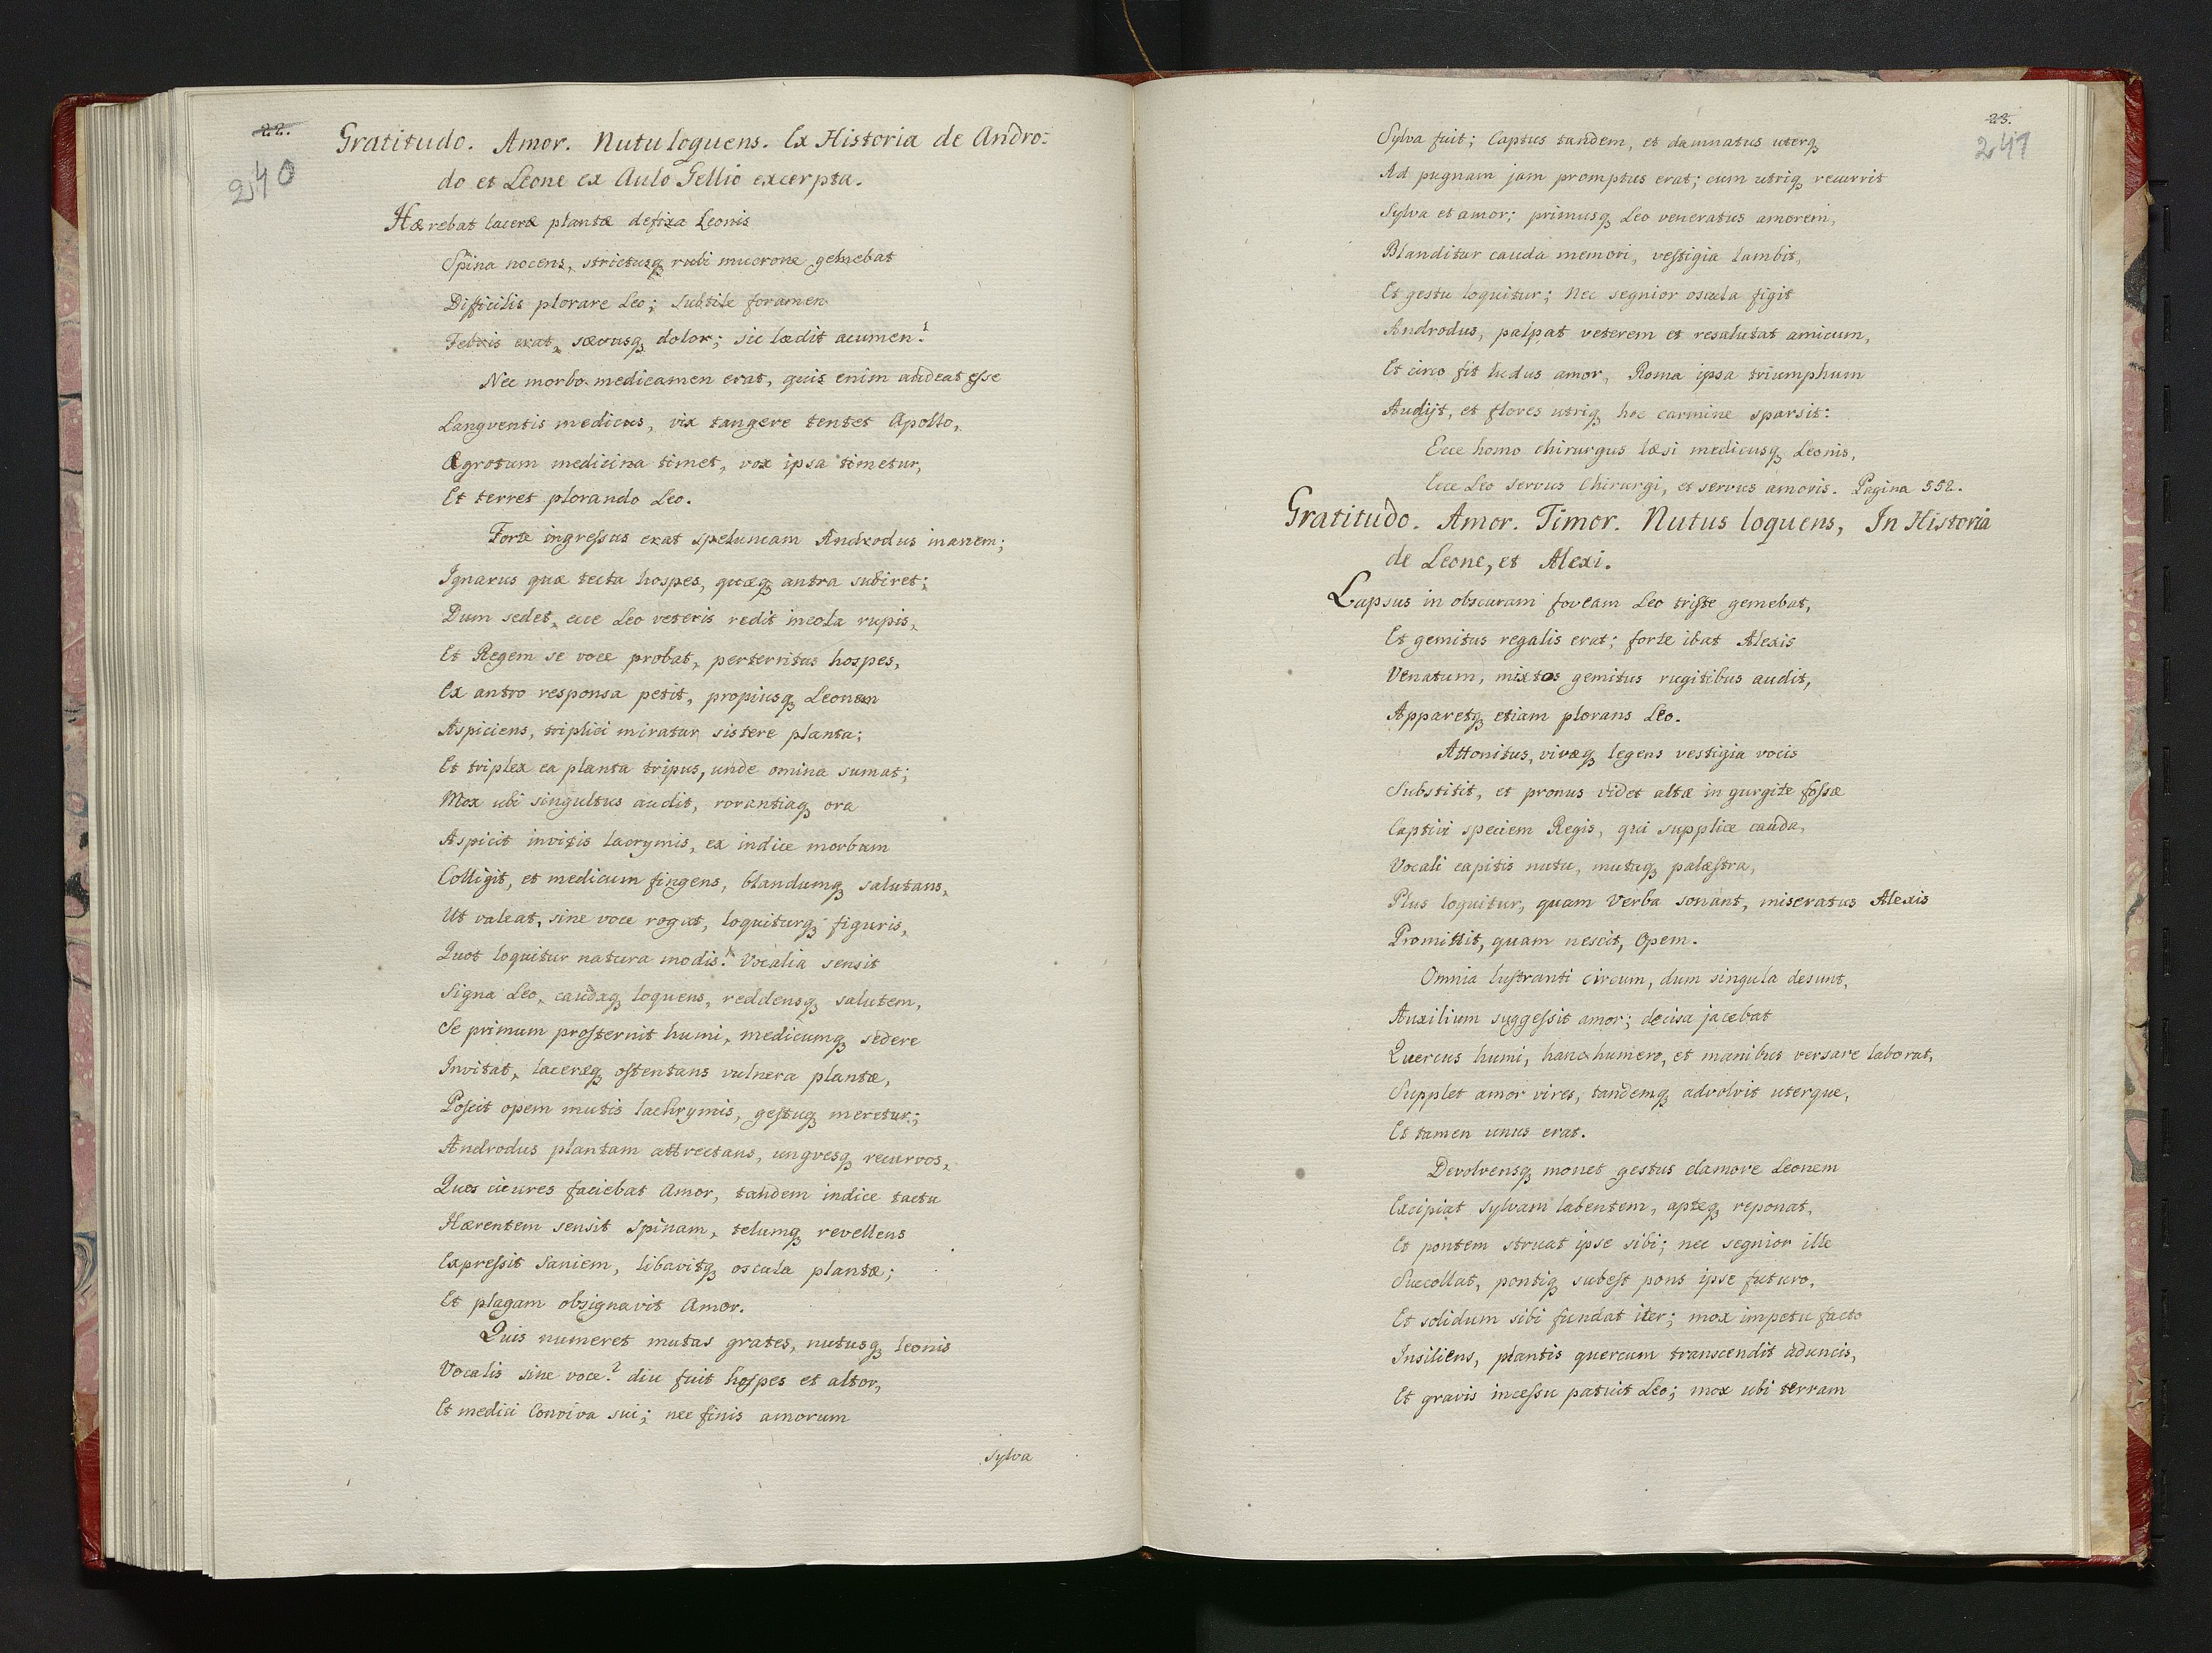 22.
240
Gratitudo. Amor. Nutu loquens. Ex Historia de Andro:
do et Leone ex Aulo Gellio excerpta.
Hærebat laceræ plantæ defixa Leonis
Spina nocens, strictusq; rubi mucrone gemebat
Difficilis plorare Leo; subtile foramen
Febris erat, sævusq; dolor; sic lædit acumen!
Nec morbo medicamen erat, quis enim audeat esse
Langventis medicus, vix tangere tentet Apollo,
Ægrotum medicina timet, vox ipsa timetur,
Et terret plorando Leo.
Forte ingressus erat speluncam Androdus inanem;
Ignarus quæ tecta hospes, quæq; antra subiret;
Dum sedet, ecce Leo veteris redit incola rupis,
Et Regem se voce probat, perterritus hospes,
Ex antro responsa petit, propiusq; Leonem
Aspiciens, triplici miratur sistere planta;
Et triplex ea planta tripus, unde omina sumat;
Mox ubi singultus audit, rorantiaq; ora
Aspicit invitis lacrymis, ex indice morbum
Colligit, et medicum fingens, blandumq; salutans,
Ut valeat, sine voce rogat, loquiturq; figuris,
Quot loquitur natura modis! Vocalia sensit
Signa Leo, caudaq; loquens, reddensq; salutem,
Se primum prosternit humi, medicumq; sedere
Invitat, laceræq; ostentans vulnera plantæ,
Poscit opem mutis lachrymis, gestuq; meretur;
Androdus plantam attrectans, ungvesq; recurvos,
Quos cicures faciebat Amor, tandem indice tactu
Hærentem sensit spinam, telumq; revellens
Expressit saniem, libavitq; oscula plantæ;
Et plagam obsignavit Amor.
Quis numeret mutas grates, nutusq; leonis
Vocalis sine voce? diu fuit hospes et altor,
Et medici Conviva sui; nec finis amorum
Sylva
23.
241
Sylva fuit; Captus tandem, et damnatus uterq;
Ad pugnam jam promptus erat; cum utriq; recurrit
Sylva et amor; primusq; Leo veneratus amorem,
Blanditur cauda memori, vestigia lambit,
Et gestu loquitur; Nec segnior oscula figit
Androdus, palpat veterem et resalutat amicum,
Et circo fit ludus amor, Roma ipsa triumphum
Audijt, et flores utriq; hoc carmine sparsit:
Ecce homo chirurgus læsi medicusq; Leonis,
Ecce Leo servus Chirurgi, et servus amoris. Pagina 552.
Gratitudo. Amor. Timor. Nutus loquens, In Historia
de Leone, et Alexi.
Lapsus in obscuram foveam Leo triste gemebat,
Et gemitus regalis erat; forte ibat Alexis
Venatum, mixtos gemitus rugitibus audit,
Apparetq; etiam plorans Leo.
Attonitus, vivæq; legens vestigia vocis
Substitit, et pronus videt altæ in gurgite fossæ
Captivi speciem Regis, qui supplice cauda,
Vocali capitis nutu, mutaq; palæstra,
Plus loquitur, quam Verba sonant, miseratus Alexis
Promittit, quam nescit, Opem.
Omnia lustranti circum, dum singula desunt,
Auxilium suggessit amor; decisa jacebat
Quercus humi, hanc humero, et manibus versare laborat,
Supplet amor vires, tandemq; advolvit uterque,
Et tamen unus erat.
Devolvensq; monet gestus clamore Leonem
Excipiat sylvam labentem, apteq; reponat,
Et pontem struat ipse sibi; nec segnior ille
Succollat, pontiq; subest pons ipse futuro,
Et solidum sibi fundat iter; mox impetu facto
Insiliens, plantis quercum transcendit aduncis,
Et gravis incessu patuit Leo; mox ubi terram